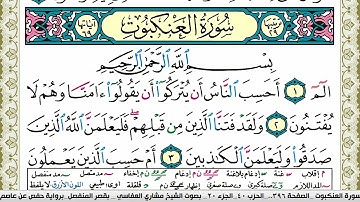 سُورَةُ العَنكَبُوتِ
بِسْمِ ٱللَّهِ ٱلرَّحْمَٰنِ ٱلرَّحِيمِ
الٓمٓ ١ أَحَسِبَ ٱلنَّاسُ أَن يُتْرَكُوٓا۟ أَن يَقُولُوٓا۟ ءَامَنَّا وَهُمْ لَا
يُفْتَنُونَ ٢ وَلَقَدْ فَتَنَّا ٱلَّذِينَ مِن قَبْلِهِمْ فَلَيَعْلَمَنَّ ٱللَّهُ ٱلَّذِينَ
صَدَقُوا۟ وَلَيَعْلَمَنَّ ٱلْكَٰذِبِينَ ٣ أَمْ حَسِبَ ٱلَّذِينَ يَعْمَلُونَ
سورة العنكبوت - الصفحة ٣٩٦ - الجزء ٢٠ - بصوت الشيخ مشاري العفاسي - بقصر المنفصل برواية حفص عن عاصم